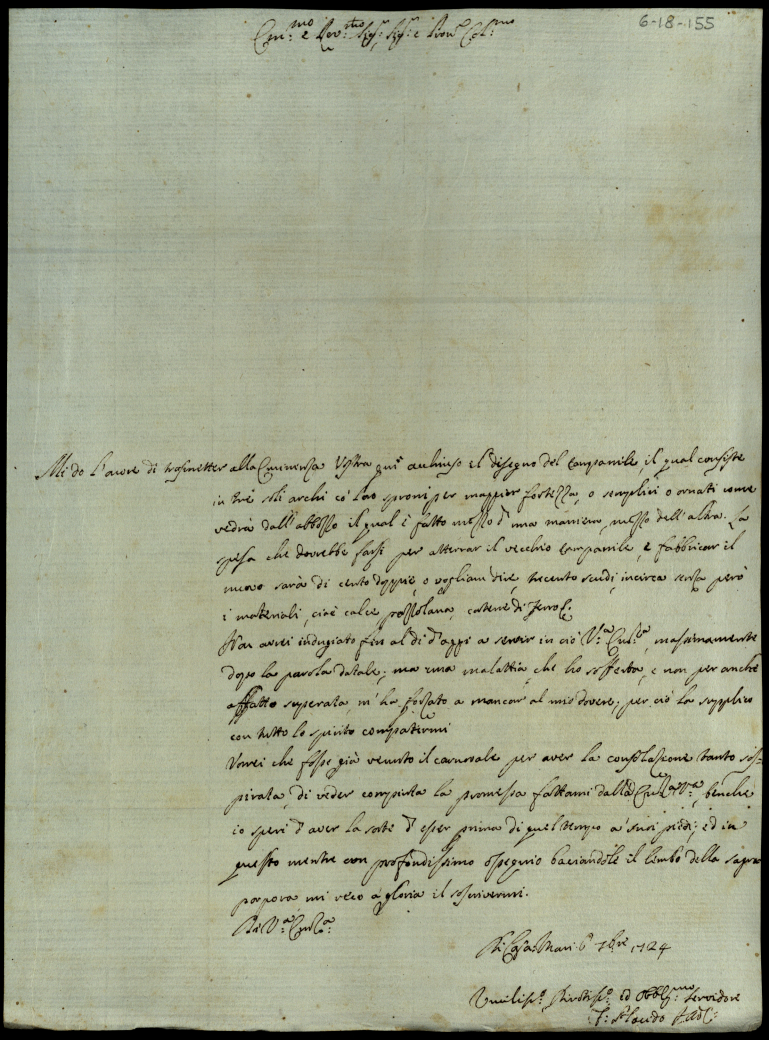 6-18-155
Em:mo e Rev:mo Sig:r Sig:r e Pron Col:mo
Mi do l'onore di trasmetter alla Eminenza Vostra quì acchiuso il disegno del campanile, il qual consiste
in trè soli archi co' loro sproni per maggior fortezza, o semplici o ornati come
vedrà dall'abbozzo il qual è fatto mezzo d'una maniera, mezzo dell'altra. La
spesa che dovrebbe farsi per atterrar il vecchio campanile, e fabbricar il
nuovo sarà di cento doppie, o vogliam dire, trecento scudi, incirca senza però
i materiali, cioè calce pozzolana, catene di ferro &c:
Non avrei indugiato fin al dì d'oggi a servir in ciò V:a Em:za, massimamente
dopo la parola datale; ma una malattia, che ho sofferta, e non per anche
affatto superata m'ha forzato a mancar al mio dovere; per ciò la supplico
con tutto lo spirito compatirmi
Vorrei che fosse già venuto il carnovale per aver la consolazione tanto sos-
pirata, di veder compiuta la promessa fattami dalla Em:za V:a, benche
io speri d'aver la sorte d'esser prima di quel tempo a' suoi piedi; ed in
questo mentre con profondissimo ossequio baciandole il lembo della sagra
porpora mi reco a gloria il soscrivermi.
Di V:a Em:za
Di Casa Mari 6 7bre 1724
Umiliss:o Divotiss:o ed Obblig:mo Servidore
F: Placido